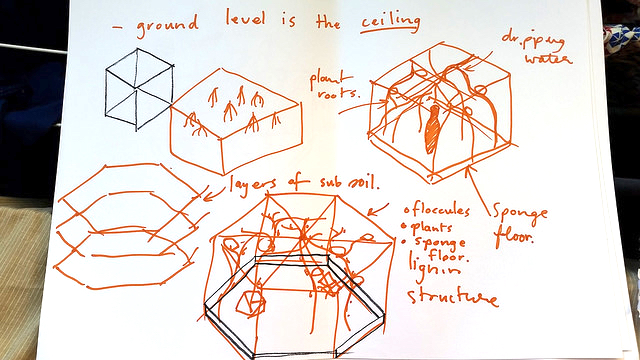 - ground level is the ceiling
dripping
water
plant
roots.
layers of sub soil.
• floccules
• plants
• sponge
floor.
lignin
structure
Sponge
floor.